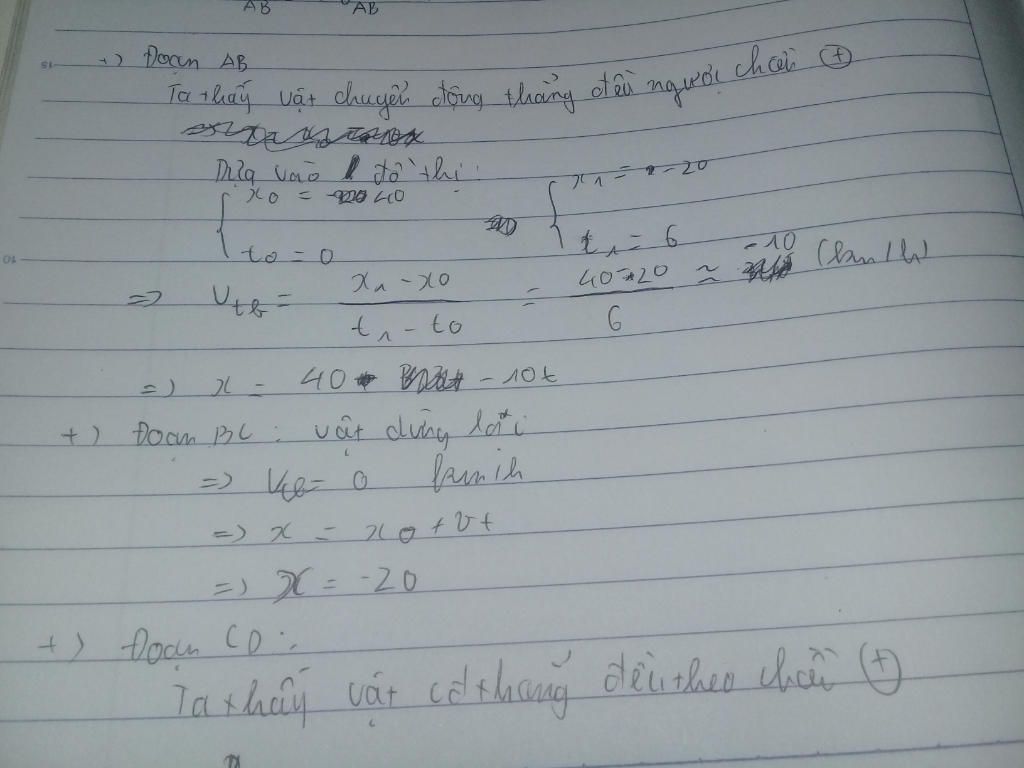 AB AB
+) Đoạn AB
Ta thấy vật chuyển động thẳng đều ngược chiều (+)
Dựa vào đồ thị:
{ x0 = 40 { x1 = -20
t0 = 0 t1 = 6
=> Vtb = (x1 - x0) / (t1 - t0) = (40-20) / 6 ≈ -10 (km/h)
=> x = 40 - 10t
+) Đoạn BC: vật dừng lại
=> Vtb = 0 km/h
=> x = x0 + vt
=> x = -20
+) Đoạn CD:
Ta thấy vật cđ thẳng đều theo chiều (+)